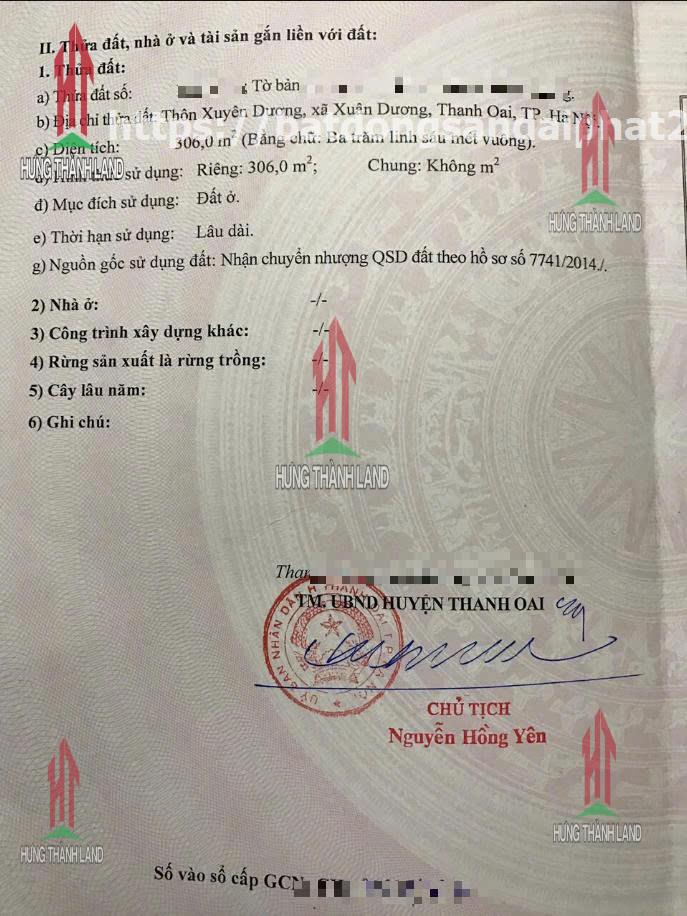 II. Thửa đất, nhà ở và tài sản gắn liền với đất:
1. Thửa đất:
a) Thửa đất số: Tờ bản
b) Địa chỉ thửa đất: Thôn Xuyên Dương, xã Xuân Dương, Thanh Oai, TP. Hà Nội.
c) Diện tích: 306,0 m² (Bằng chữ: Ba trăm linh sáu mét vuông).
sử dụng: Riêng: 306,0 m²; Chung: Không m²
đ) Mục đích sử dụng: Đất ở.
e) Thời hạn sử dụng: Lâu dài.
g) Nguồn gốc sử dụng đất: Nhận chuyển nhượng QSD đất theo hồ sơ số 7741/2014./.
2) Nhà ở: -/-
3) Công trình xây dựng khác: -/-
4) Rừng sản xuất là rừng trồng: -/-
5) Cây lâu năm: -/-
6) Ghi chú:
HƯNG THÀNH LAND
HƯNG THÀNH LAND
HƯNG THÀNH LAND
TM. UBND HUYỆN THANH OAI
ỦY BAN NHÂN DÂN H THANH OAI T.P HÀ NỘI
CHỦ TỊCH
Nguyễn Hồng Yên
HƯNG THÀNH LAND
HƯNG THÀNH LAND
Số vào sổ cấp GCN